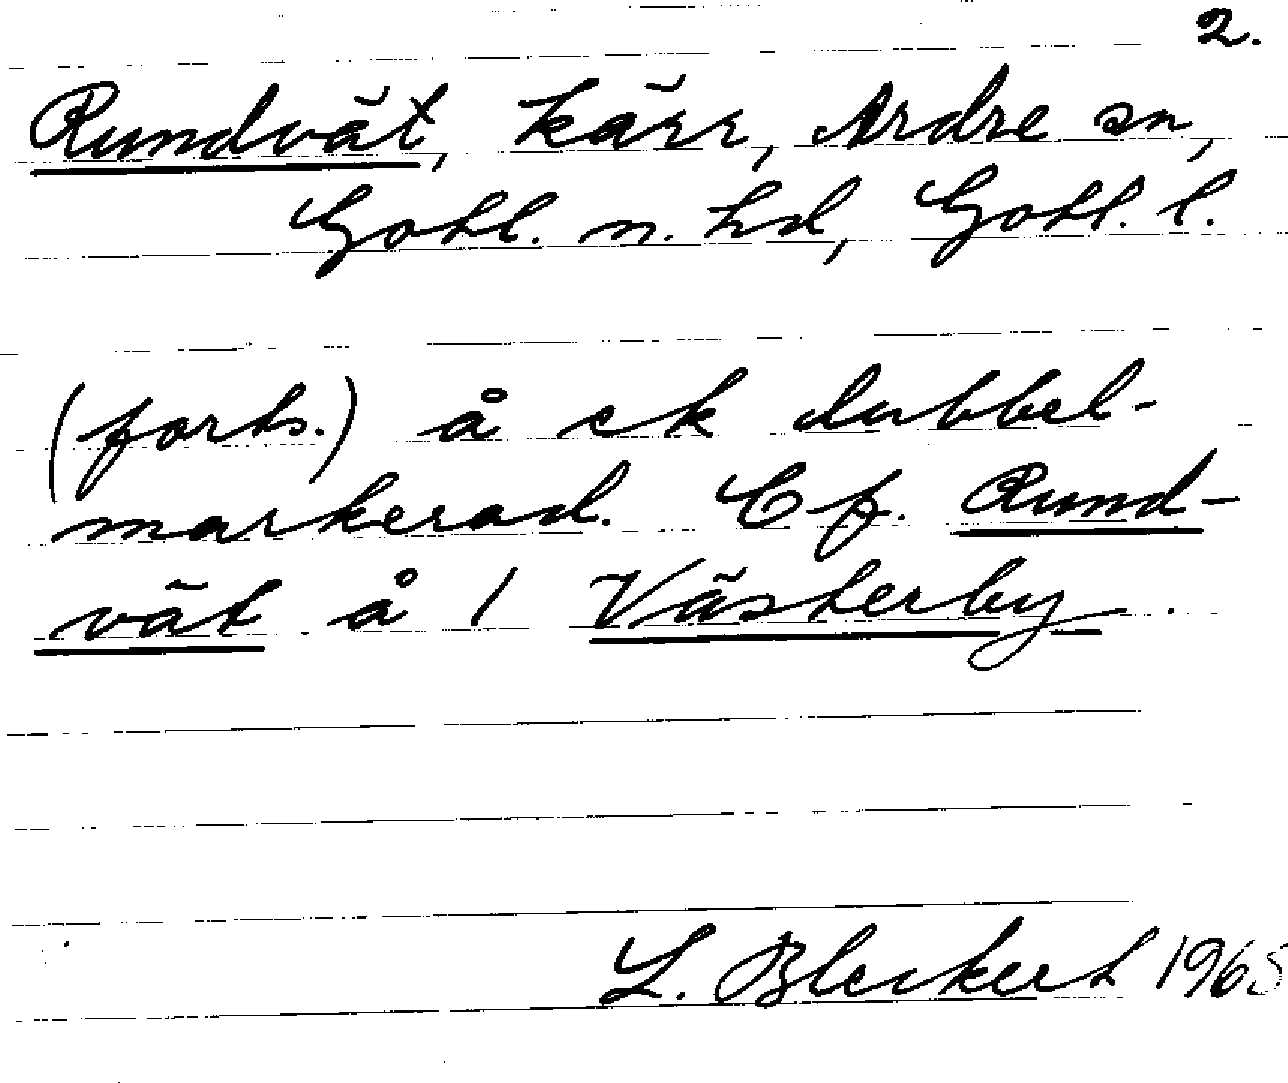 2.
Rundvät, kärr, Ardre sn,
Gotl. n. hd, Gotl. l.
(forts.) å ek dubbel-
markerad. Cf. Rund-
vät å 1 Västerby.
L. Bleckert 1965